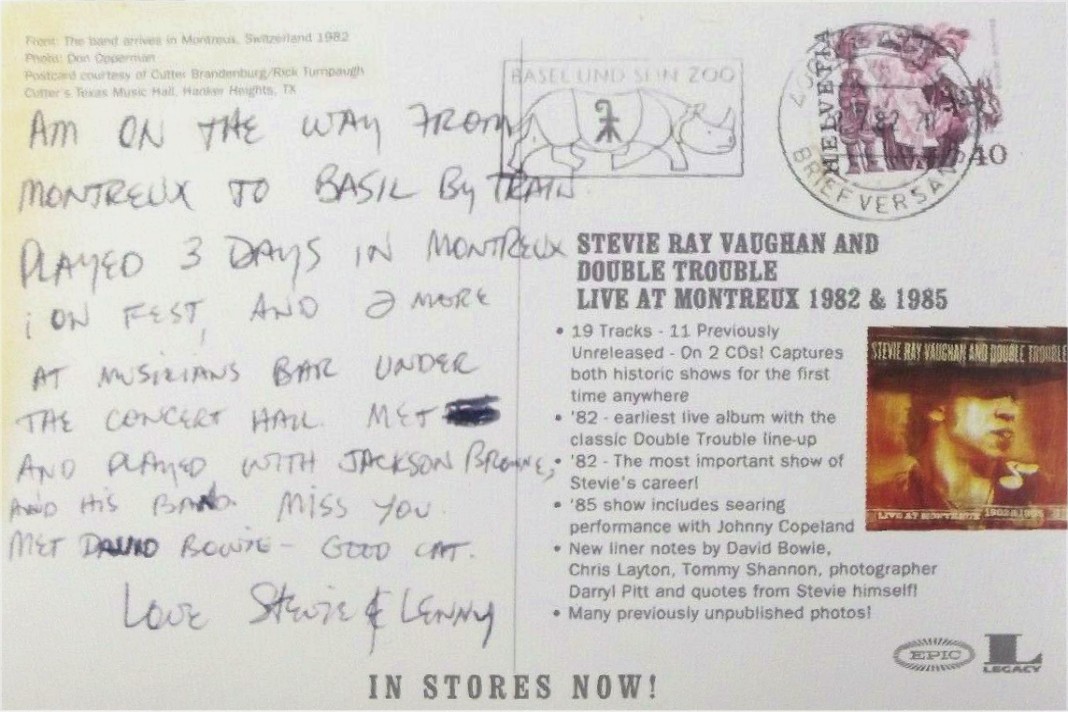 Front: The band arrives in Montreux, Switzerland 1982
Photo: Don Opperman
Postcard courtesy of Cutter Brandenburg/Rick Turnpaugh
Cutter's Texas Music Hall, Hanker Heights, TX
AM ON THE WAY FROM
MONTREUX TO BASIL By TRAIN
PLAYED 3 DAYS IN MONTREUX
1 ON FEST, AND 2 MORE
AT MUSICIANS BAR UNDER
THE CONCERT HALL. MET
AND PLAYED WITH JACKSON BROWNE,
AND HIS BAND. MISS YOU
MET DAVID BOWIE - GOOD CAT.
LOVE STEVIE & LENNY
BASEL UND SEIN ZOO
HELVETIA
40
BRIEFVERSAND
STEVIE RAY VAUGHAN AND
DOUBLE TROUBLE
LIVE AT MONTREUX 1982 & 1985
• 19 Tracks - 11 Previously
Unreleased - On 2 CDs! Captures
both historic shows for the first
time anywhere
• '82 - earliest live album with the
classic Double Trouble line-up
• '82 - The most important show of
Stevie's career!
• '85 show includes searing
performance with Johnny Copeland
• New liner notes by David Bowie,
Chris Layton, Tommy Shannon, photographer
Darryl Pitt and quotes from Stevie himself!
• Many previously unpublished photos!
STEVIE RAY VAUGHAN AND DOUBLE TROUBLE
LIVE AT MONTREUX 1982 & 1985
EPIC
L
LEGACY
IN STORES NOW!